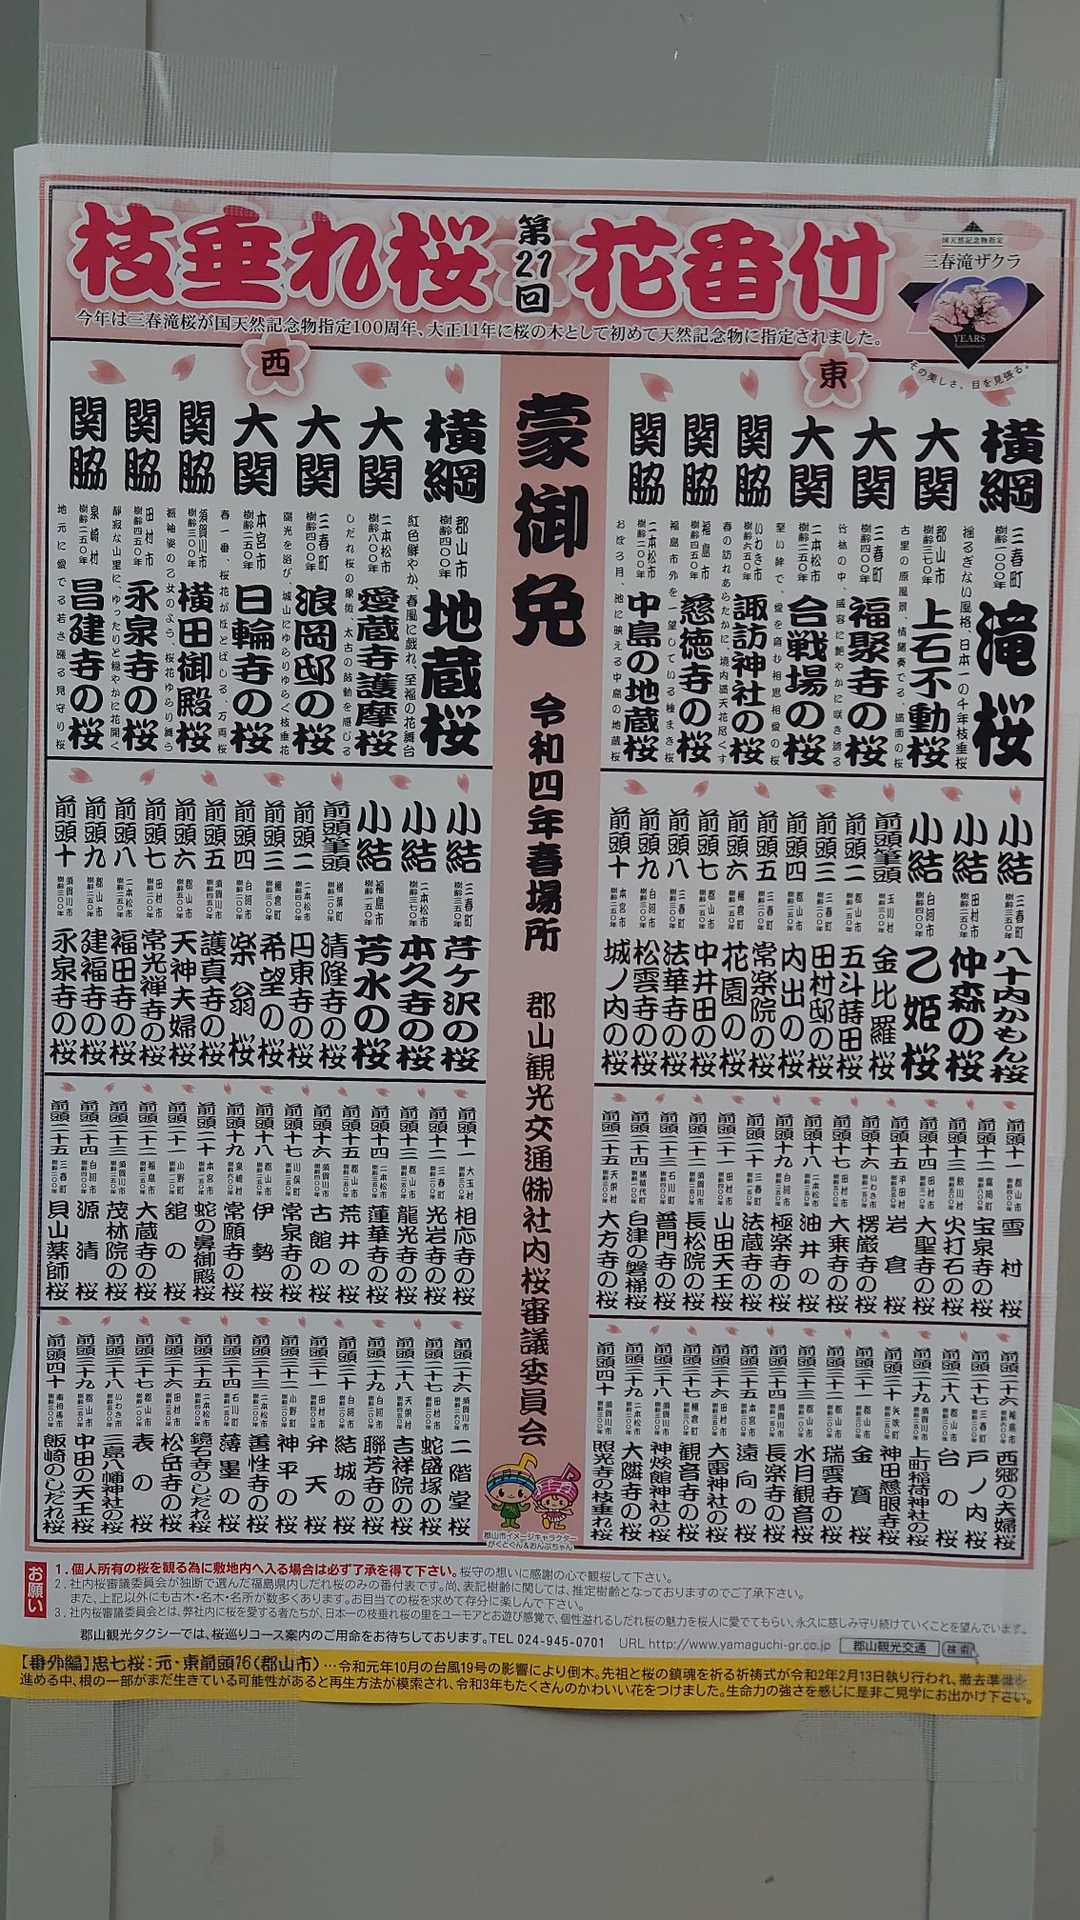 枝垂れ桜
第27回
花番付
国天然記念物指定
三春滝ザクラ
100
YEARS
Anniversary
その美しさ、目を見張る。
今年は三春滝桜が国天然記念物指定100周年、大正11年に桜の木として初めて天然記念物に指定されました。
東
横綱 三春町 樹齢一〇〇〇年 滝桜
揺るぎない風格、日本一の千年枝垂桜
大関 郡山市 樹齢三七〇年 上石不動桜
古里の原風景、情緒奏でる、満面の桜
大関 三春町 樹齢四〇〇年 福聚寺の桜
竹林の中、威容に艶やかに咲き誇る
大関 二本松市 樹齢二五〇年 合戦場の桜
至い絆で、愛を育む相思相愛の桜
関脇 いわき市 樹齢六五〇年 諏訪神社の桜
春の訪れあらたかに、境内満天花尽くす
関脇 福島市 慈徳寺の桜
福島市外を一望している種まき桜
関脇 二本松市 中島の地蔵桜
おぼろ月、池に映える中島の地蔵桜
小結 三春町 八十内かもん桜
小結 田村市 仲森の桜
小結 白河市 樹齢四〇〇年 乙姫桜
前頭筆頭 玉川村 金比羅桜
前頭二 郡山市 五斗蒔田桜
前頭三 三春町 田村邸の桜
前頭四 郡山市 内出の桜
前頭五 三春町 常楽院の桜
前頭六 棚倉町 花園の桜
前頭七 郡山市 中井田の桜
前頭八 三春町 法華寺の桜
前頭九 白河市 松雲寺の桜
前頭十 本宮市 城ノ内の桜
前頭十一 郡山市 雪村桜
前頭十二 富岡町 宝泉寺の桜
前頭十三 鮫川村 火打石の桜
前頭十四 大聖寺の桜
前頭十五 平田村 岩倉桜
前頭十六 いわき市 楞厳寺の桜
前頭十七 田村市 大乗寺の桜
前頭十八 二本松市 油井の桜
前頭十九 白河市 極楽寺の桜
前頭二十 三春町 法蔵寺の桜
前頭二十一 田村市 山田天王桜
前頭二十二 須賀川市 長松院の桜
前頭二十三 石川町 普門寺の桜
前頭二十四 猪苗代町 白津の磐梯桜
前頭二十五 天栄村 大方寺の桜
前頭二十六 福島市 西郷の夫婦桜
前頭二十七 三春町 戸ノ内桜
前頭二十八 郡山市 台の桜
前頭二十九 須賀川市 上町稲荷神社の桜
前頭三十 矢吹町 神田慈眼寺桜
前頭三十一 三春町 金寶桜
前頭三十二 郡山市 瑞雲寺の桜
前頭三十三 郡山市 水月観音桜
前頭三十四 須賀川市 長楽寺の桜
前頭三十五 本宮市 遠向の桜
前頭三十六 田村市 大雷神社の桜
前頭三十七 棚倉町 観音寺の桜
前頭三十八 神炊館神社の桜
前頭三十九 二本松市 大隣寺の桜
前頭四十 須賀川市 照光寺の枝垂れ桜
蒙御免
令和四年春場所
郡山観光交通㈱社内桜審議委員会
郡山市イメージキャラクター
がくとくん&おんぷちゃん
西
横綱 郡山市 樹齢四〇〇年 地蔵桜
紅色鮮やか、春風に戯れ、至福の花舞台
大関 二本松市 樹齢八〇〇年 愛蔵寺護摩桜
しだれ桜の象徴、太古の鼓動を感じる
大関 三春町 樹齢四〇〇年 浪岡邸の桜
陽光を浴び、城山にゆらりゆらぐ枝垂花
大関 本宮市 樹齢二五〇年 日輪寺の桜
春一番、桜花がほとばしる、万両桜
関脇 須賀川市 樹齢三〇〇年 横田御殿桜
振袖姿の乙女のよう、桜花ゆらり舞う
関脇 田村市 樹齢四五〇年 永泉寺の桜
静寂な山里にゆったりと穏やかに花開く
関脇 泉崎村 樹齢二五〇年 昌建寺の桜
地元に愛でる若さ漲る見守り桜
小結 三春町 芹ケ沢の桜
小結 二本松市 樹齢三七〇年 本久寺の桜
小結 福島市 芳水の桜
前頭筆頭 楢葉町 清隆寺の桜
前頭二 二本松市 円東寺の桜
前頭三 棚倉町 希望の桜
前頭四 白河市 楽翁桜
前頭五 須賀川市 護真寺の桜
前頭六 郡山市 天神夫婦桜
前頭七 田村市 常光禅寺の桜
前頭八 二本松市 福田寺の桜
前頭九 郡山市 建福寺の桜
前頭十 須賀川市 樹齢三〇〇年 永泉寺の桜
前頭十一 大玉村 相応寺の桜
前頭十二 三春町 光岩寺の桜
前頭十三 郡山市 龍光寺の桜
前頭十四 二本松市 蓮華寺の桜
前頭十五 郡山市 荒井の桜
前頭十六 須賀川市 古館の桜
前頭十七 川俣町 常泉寺の桜
前頭十八 郡山市 伊勢桜
前頭十九 泉崎村 常願寺の桜
前頭二十 本宮市 蛇の鼻御殿桜
前頭二十一 小野町 舘の桜
前頭二十二 福島市 大蔵寺の桜
前頭二十三 須賀川市 茂林院の桜
前頭二十四 白河市 源清桜
前頭二十五 三春町 貝山薬師桜
前頭二十六 須賀川市 二階堂桜
前頭二十七 二本松市 蛇盛塚の桜
前頭二十八 天栄村 吉祥院の桜
前頭二十九 田村市 聯芳寺の桜
前頭三十 白河市 結城の桜
前頭三十一 田村市 弁天桜
前頭三十二 小野町 神平の桜
前頭三十三 二本松市 善性寺の桜
前頭三十四 石川町 薄墨の桜
前頭三十五 二本松市 鏡石寺のしだれ桜
前頭三十六 田村市 松岳寺の桜
前頭三十七 郡山市 表の桜
前頭三十八 いわき市 三島八幡神社の桜
前頭三十九 郡山市 中田の天王桜
前頭四十 南相馬市 飯崎のしだれ桜
お願い
1. 個人所有の桜を観る為に敷地内へ入る場合は必ず了承を得て下さい。桜守の想いに感謝の心で観桜して下さい。
2. 社内桜審議委員会が独断で選んだ福島県内しだれ桜のみの番付表です。尚、表記樹齢に関しては、推定樹齢となっておりますのでご了承下さい。
また、上記以外にも古木・名木・名所が数多くあります。お目当ての桜を求めて存分に楽しんで下さい。
3. 社内桜審議委員会とは、弊社内に桜を愛する者たちが、日本一の枝垂れ桜の里をユーモアとお遊び感覚で、個性溢れるしだれ桜の魅力を桜人に愛でてもらい、永久に慈しみ守り続けていくことを望んでいます。
郡山観光タクシーでは、桜巡りコース案内のご用命をお待ちしております。TEL 024-945-0701 URL http://www.yamaguchi-gr.co.jp 郡山観光交通 検索
【番外編】忠七桜:元・東前頭76(郡山市)…令和元年10月の台風19号の影響により倒木。先祖と桜の鎮魂を祈る祈祷式が令和2年2月13日執り行われ、撤去準備を
進める中、根の一部がまだ生きている可能性があると再生方法が模索され、令和3年もたくさんのかわいい花をつけました。生命力の強さを感じに是非ご見学にお出かけ下さい。